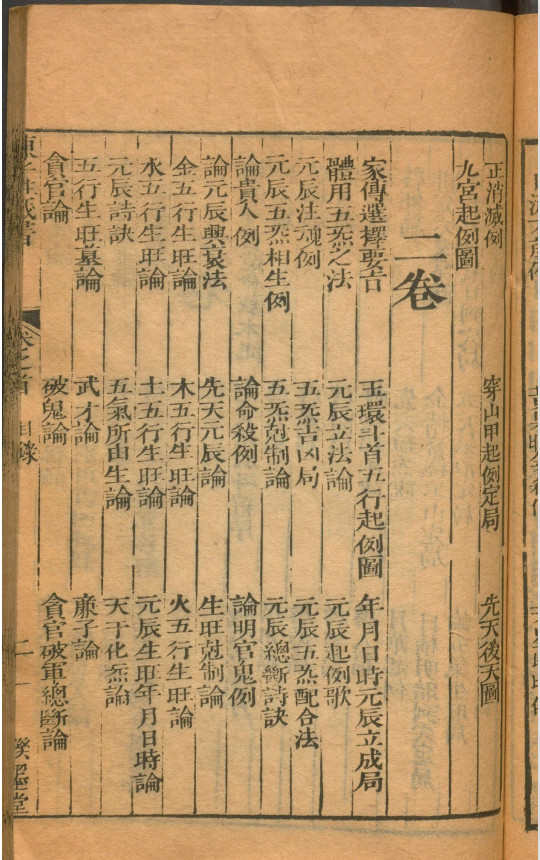 正消滅例 穿山甲起例定局 先天後天圖
九宮起例圖
二卷
家傳選擇要吉 玉環斗首五行起例圖 年月日時元辰立成局
體用五炁之法 元辰立法論 元辰起例歌
元辰注魂例 五炁吉凶局 元辰五炁配合法
元辰五炁相生例 五炁尅制論 元辰總斷詩訣
論貴人例 論命殺例 論明官鬼例
論元辰興衰法 先天元辰論 生旺尅制論
金五行生旺論 木五行生旺論 火五行生旺論
水五行生旺論 土五行生旺論 元辰生旺年月日時論
元辰詩訣 五氣所由生論 天干化炁論
五行生旺墓論 武才論 亷子論
貪官論 破鬼論 貪官破軍總斷論
卷之首 目錄 二 癸堂